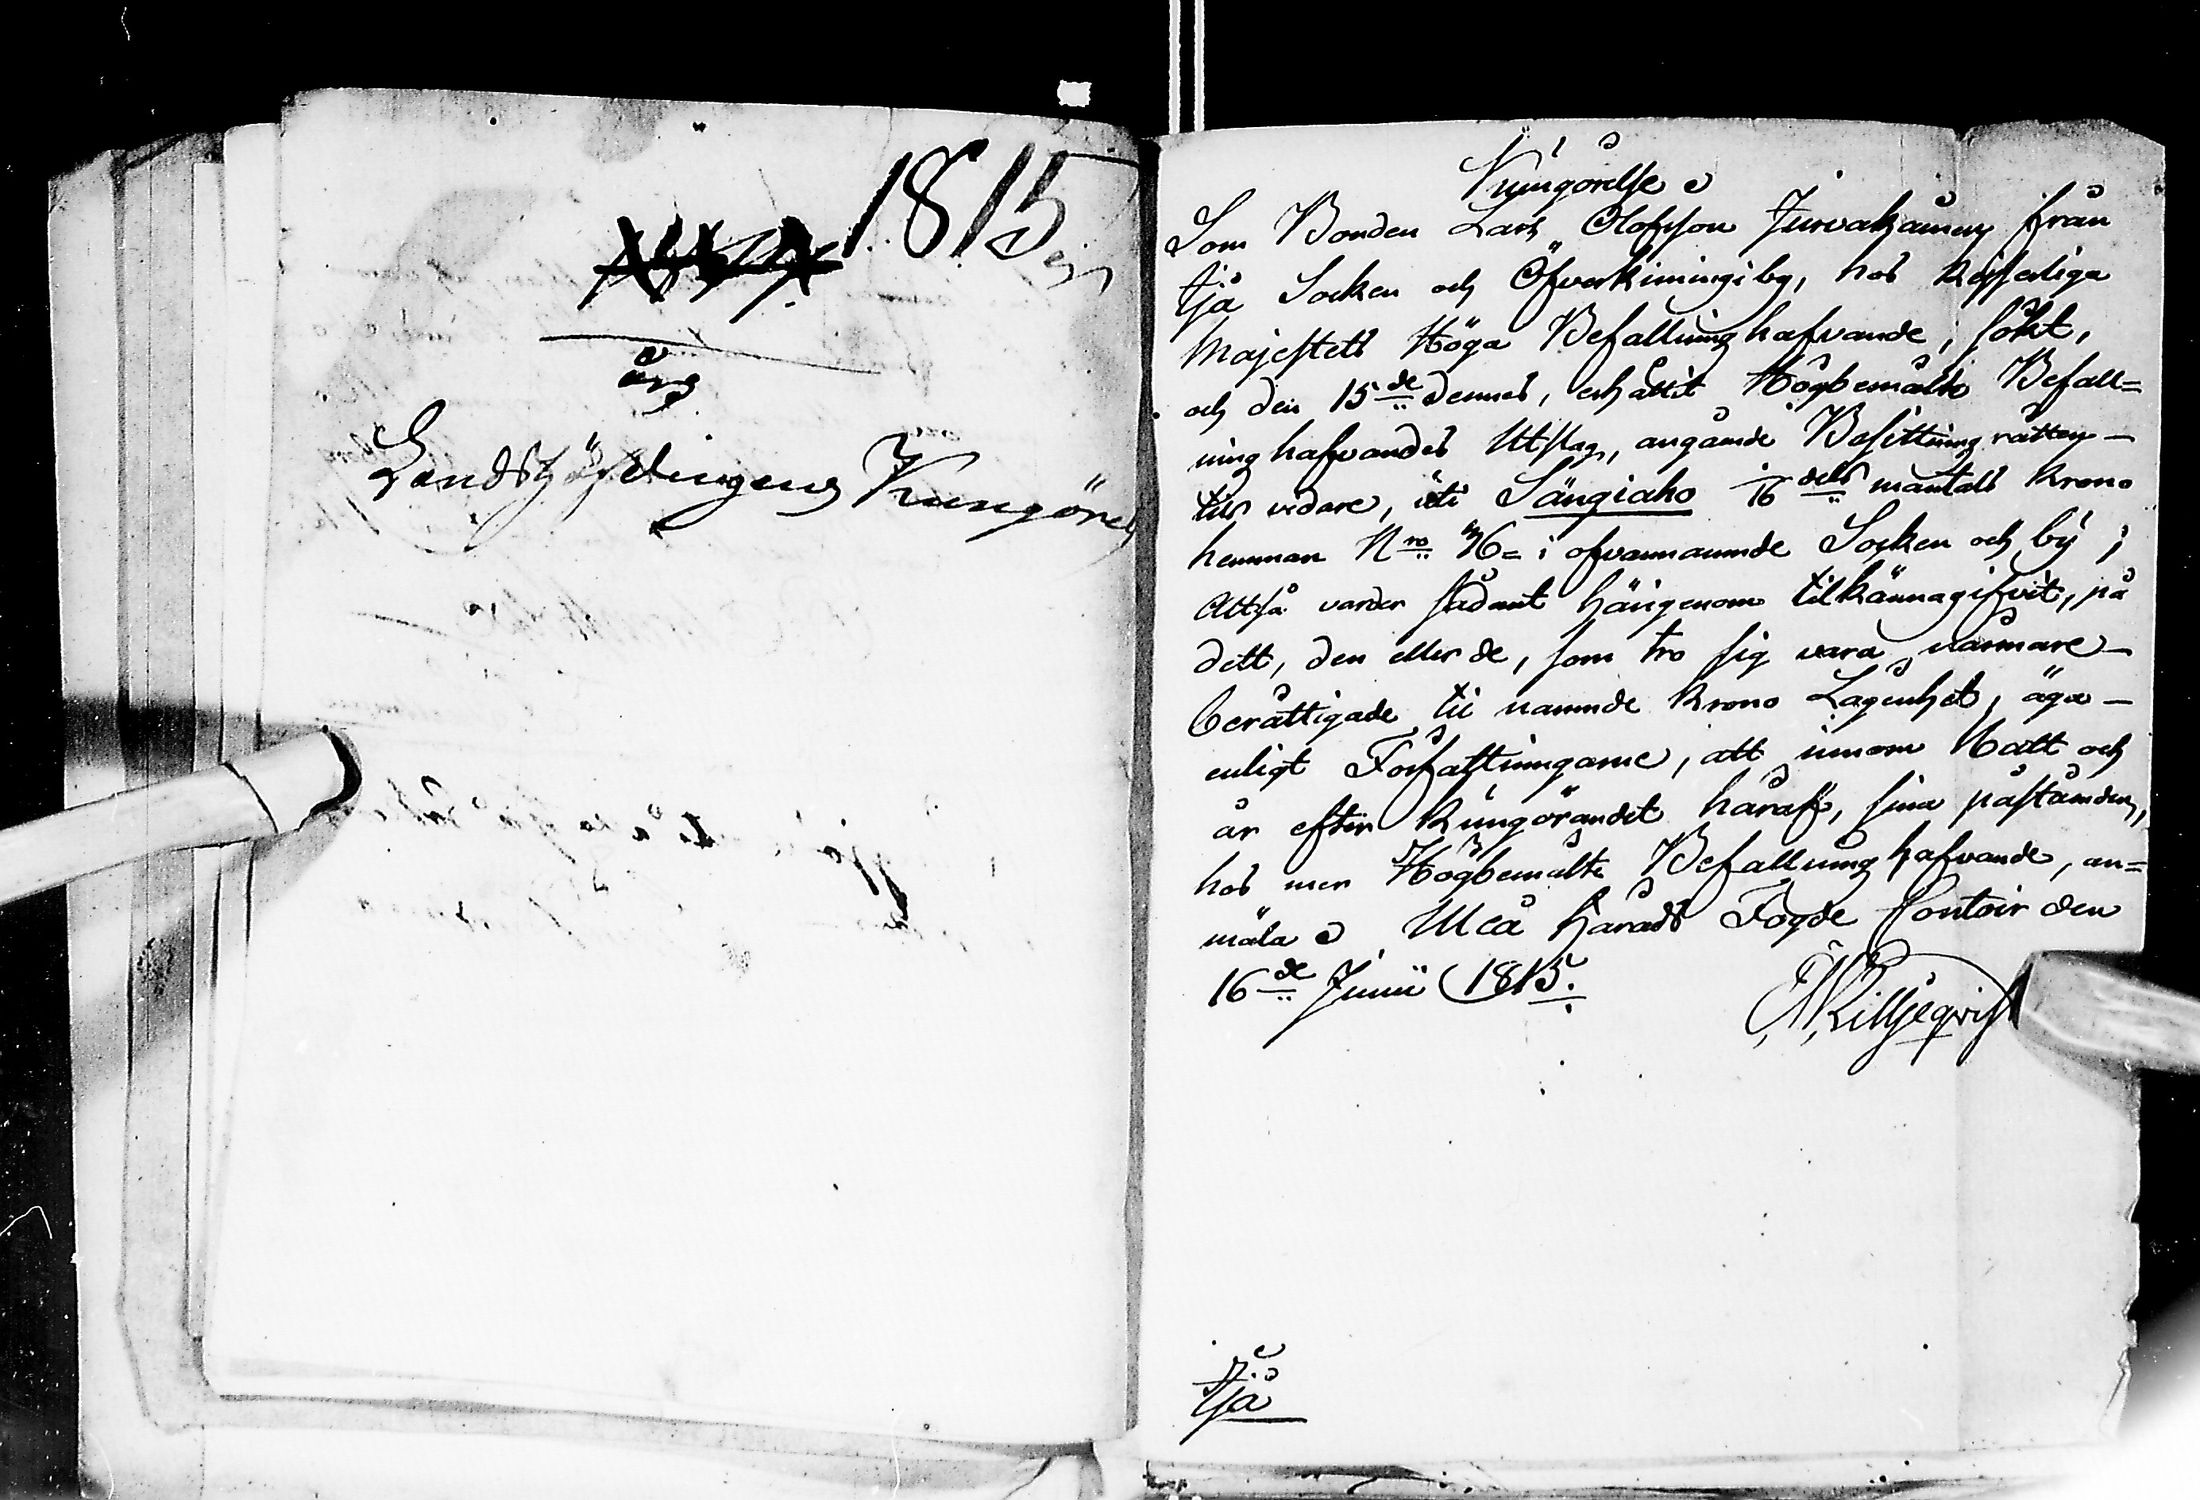 1815
års
Landshöfdingens Kungörel
Kungörelse
Som Bonden Lars Olofsson Jurvakainen från
Ijå Socken och Öfverkimingi by, hos Kejserliga
Majestets Höga Befallninghafvande, sökt,
och den 15de dennes, erhållit Högbemälte Befall=
ninghafvandes Utslag, angående Besittning rätten
tils vidare, uti Sängiaho 1/16 dels mantals Krono
hemman Nro 46 i ofvannämnde Socken och by;
Altså varder sådant härigenom tilkännagifvit, på
dett, den eller de, som tro sig vara närmare
berättigade til nämnde Krono Lägenhet, äga
enligt Författningarne, att innom Natt och
år efter Kungörandet häraf, sina påståenden,
hos mer Högbemälte Befallninghafvande, an=
mäla. Uleå Härads Fogde Contoir den
16de Junii 1815.
Lilljeqvist
Ijå